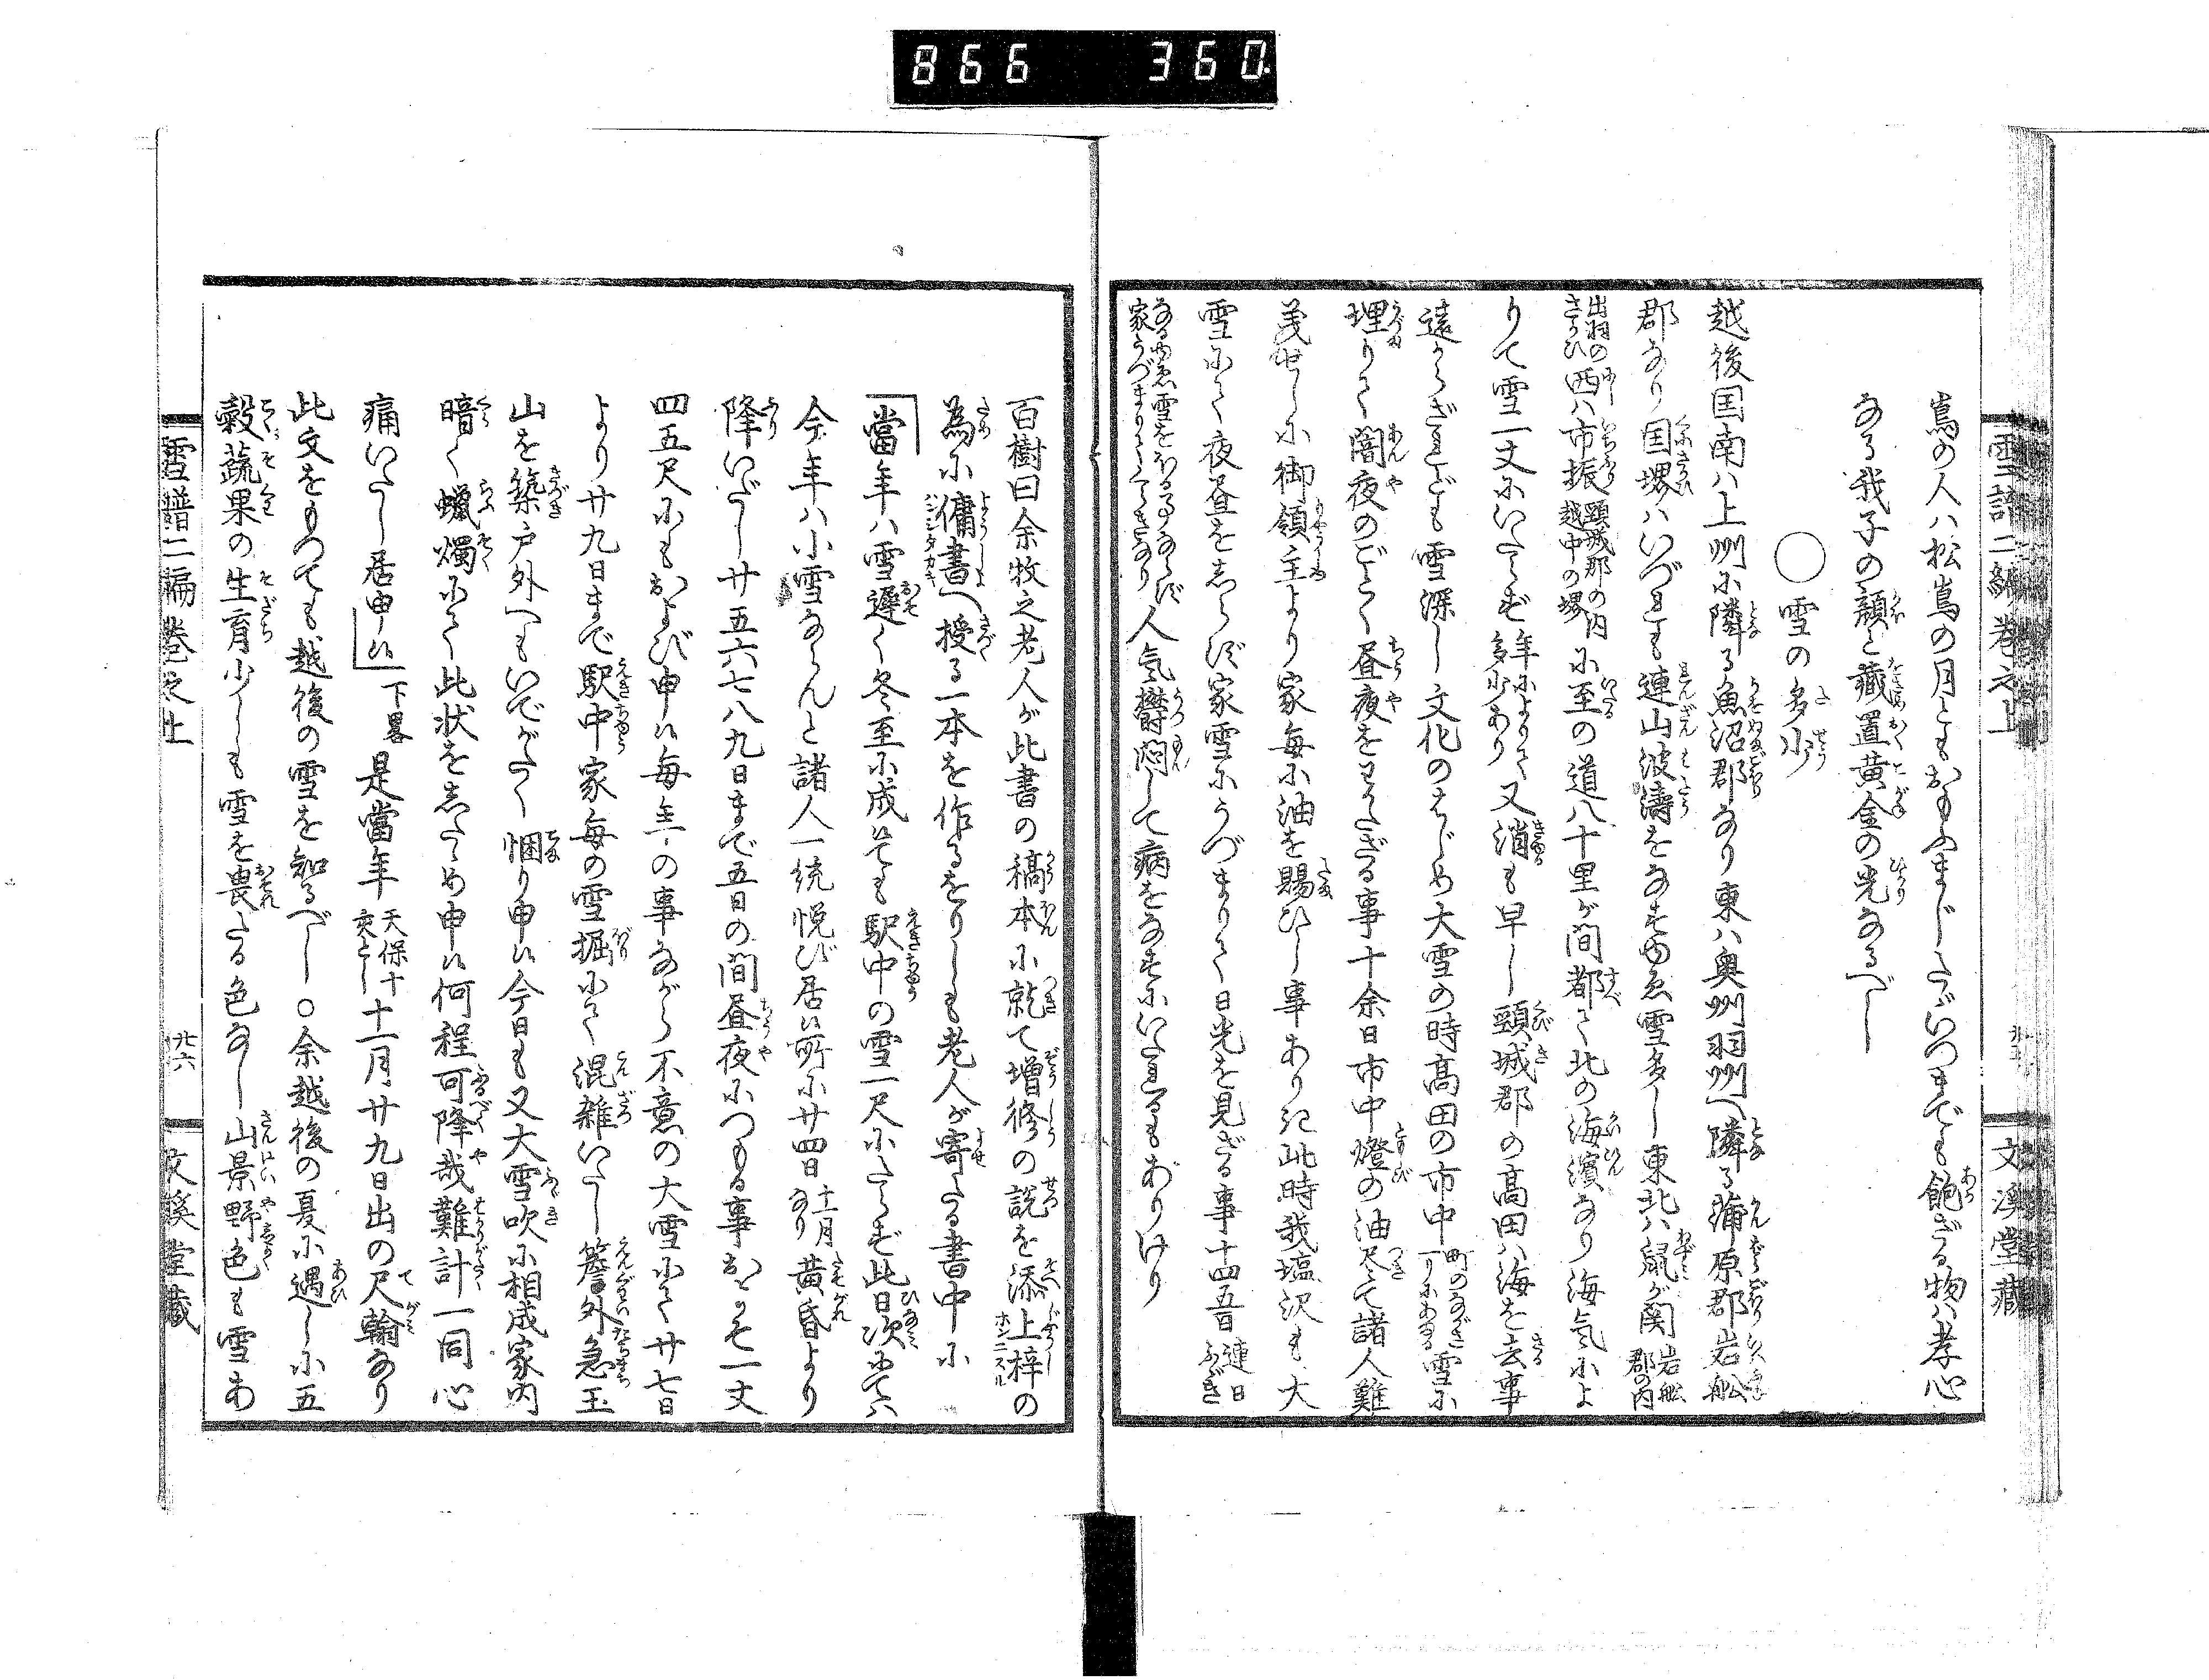 866 360
雪譜二編巻之上 廿五 文溪堂藏
嶌の人ハ松嶌の月ともおもふまじさどいつまでも飽ざる物ハ孝心
なる我子の顔と藏置黄金の光なるべし
○雪の多少
越後国南ハ上州に隣る魚沼郡なり東ハ奥州羽州へ隣る蒲原郡岩舩
郡なり国堺ハいづれも連山波濤をなすゆゑ雪多し東北ハ鼠が関岩舩郡の内
出羽のさかひ西ハ市振頸城郡の内越中の堺に至の道八十里が間都て北の海濱なり海気によ
りて雪一丈にいたらず年によりて多少あり又消も早し頸城郡の高田ハ海を去事
遠からざれども雪深し文化のはじめ大雪の時高田の市中町のながさ一りにあまる雪に
埋りて闇夜のごとく昼夜をわかたざる事十余日市中燈の油尽て諸人難
義せしに御領主より家毎に油を賜ひし事ありき此時我塩沢も大
雪にて夜昼をしらず家雪にうづまりて日光を見ざる事十四五日連日ふゞき
なるゆゑ雪をほる事ならず家うづまりてくらきなり人気欝悶して病をなすにいたれるもありけり
百樹曰余牧之老人が此書の稿本に就て増修の説を添上梓の
為に傭書へ授る一本を作るをりしも老人が寄たる書中に
「當年ハ雪遅く冬至に成候ても駅中の雪一尺にたらず此日次にてハ
今年ハ小雪ならんと諸人一統悦び居候所に廿四日十一月なり黄昏より
降いだし廿五六七八九日まで五日の間昼夜につもる事およそ一丈
四五尺にもおよび申候毎年の事ながら不意の大雪にて廿七日
より廿九日まで駅中家毎の雪掘にて混雑いたし簷外急玉
山を築戸外へもいでがたく悃り申候今日も又大雪吹に相成家内
暗く蠟燭にて此状をしたゝめ申候何程可降哉難計一同心
痛いたし居申候」下畧是當年天保十亥とし十一月廿九日出の尺翰なり
此文をもつても越後の雪を知るべし○余越後の夏に遇しに五
穀蔬果の生育少しも雪を畏たる色なし山景野色も雪あ
雪譜二編巻之上 廿六 文溪堂藏